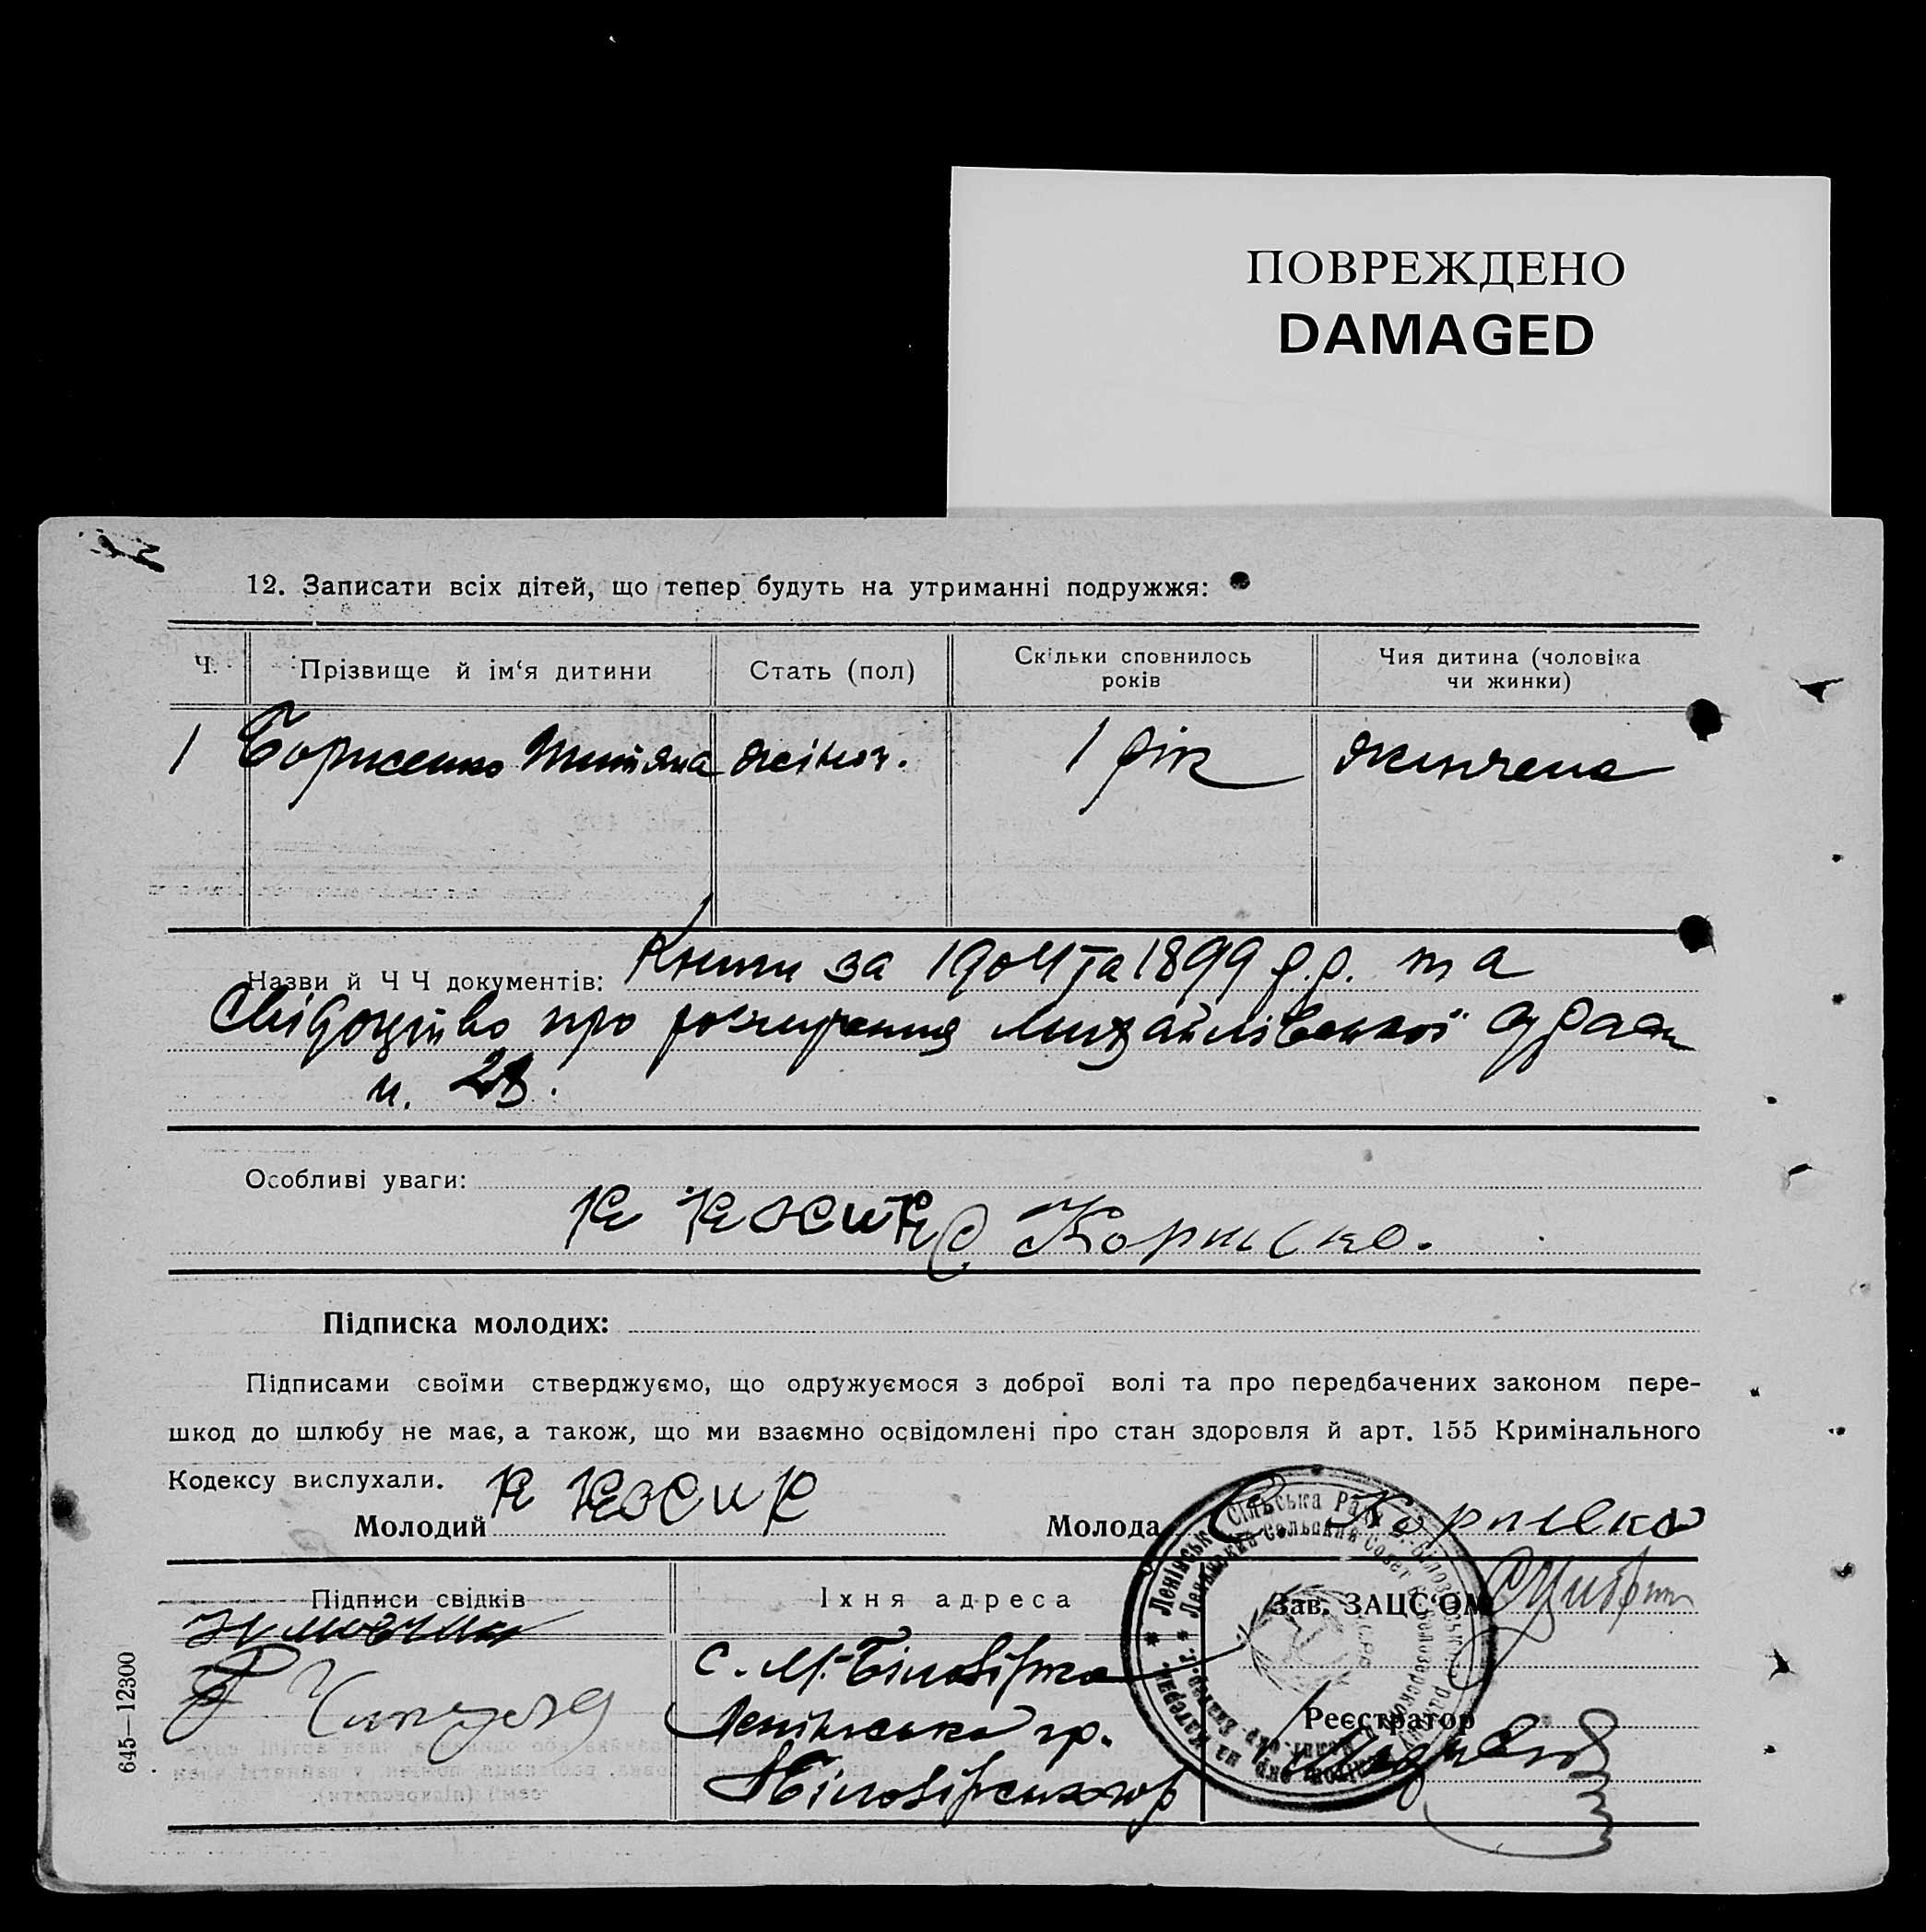 ПОВРЕЖДЕНО
DAMAGED
12. Записати всіх дітей, що тепер будуть на утриманні подружжя:
Ч. Прізвище й ім'я дитини Стать (пол) Скільки сповнилось років Чия дитина (чоловіка чи жинки)
1 Борисенко жіноч. 1 рік
Назви й Ч Ч документів: Книги за 1904 та 1899 р.р. та
про Михайлівської
н. 28.
Особливі уваги:
К Косик С.
Підписка молодих:
Підписами своїми стверджуємо, що одружуємося з доброї волі та про передбачених законом пере-
шкод до шлюбу не має, а також, що ми взаємно освідомлені про стан здоровля й арт. 155 Кримінального
Кодексу вислухали.
Молодий К Косик Молода С.
Підписи свідків Їхня адреса Зав. ЗАЦС'ОМ
с. М.-Білозірка
Ленінська
Реєстратор
Ленінська Сільська Рада
Ленинский Сельский Совет
645—12300